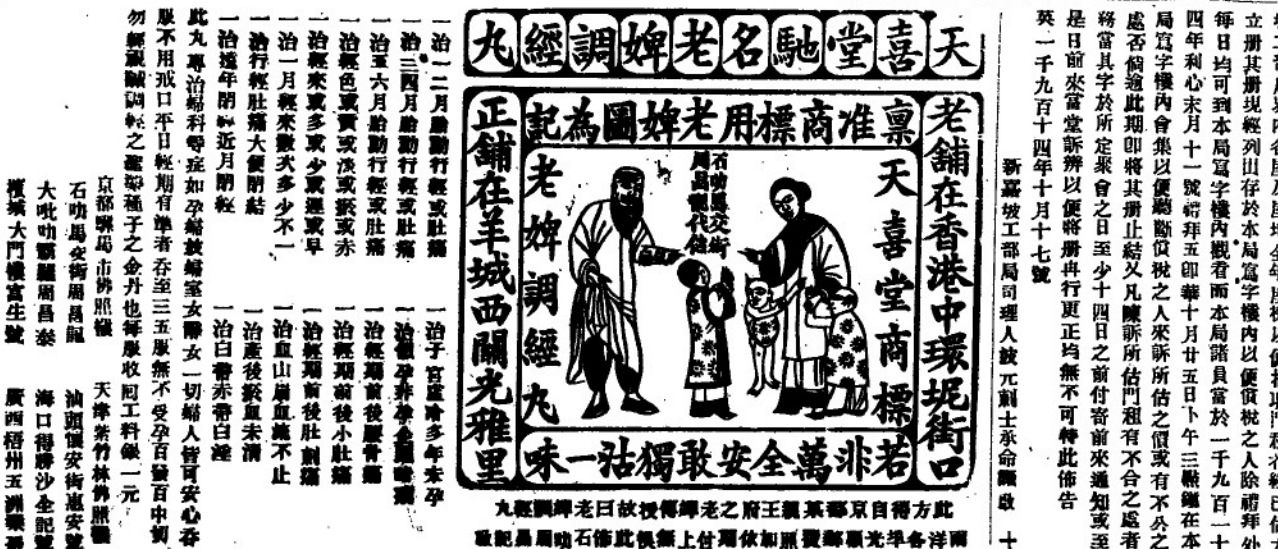 立册其册現經列出存於本局寫字樓内以便償稅之人除禮拜外
每日均可到本局寫字樓内觀看而本局諸員當於一千九百一十
四年利心末月十一號禮拜五即華十月廿五日下午三點鐘在本
局寫字樓内會集以便聽斷償稅之人來訴所估之價或有不公之
處否倘逾此期即將其册止結又凡陳訴所估門租有不合之處者
務當具字於所定聚會之日至少十四日之前付寄前來通知或至
是日前來當堂訴辨以便將册冉行更正均無不可特此佈告
英一千九百十四年十月十七號
新嘉坡工部局司理人 元 士承命謹啟
天喜堂馳名老婢調經丸
老舖在香港中環坭街口
稟准商標用老婢圖為記
正舖在羊城西關光雅里
天喜堂商標
石叻馬交街
周昌記代佐
老婢調經丸
若非萬全安敢獨沽一味
此方得自京都某親王府之老婢傳授故曰老婢調經丸
一治一二月胎動行經或肚痛
一治三四月胎動行經或肚痛
一治五六月胎動行經或肚痛
一治經色或黃或淡或瘀或赤
一治經來或多或少或遲或早
一治一月經來數次多少不一
一治行經肚痛大便閉結
一治遠年閉經近月閉經
一治子宮虛冷多年未孕
一治經期前後腰骨痛
一治經期前後小肚痛
一治經期前後肚刺痛
一治血山崩血流不止
一治產後瘀血未清
一治白帶赤帶白淫
此丸專治婦科等症如孕婦故婦室女醜女一切婦人皆可安心吞
服不用戒口平日經期有準者吞至三五服無不受孕百發百中切
勿輕視誠調經之聖藥種子之金丹也每服收回工料銀一元
京都騾馬市佛照樓
石叻馬交街周昌記
天津紫竹林佛照樓
汕頭懷安街惠安號
海口得勝沙全記號